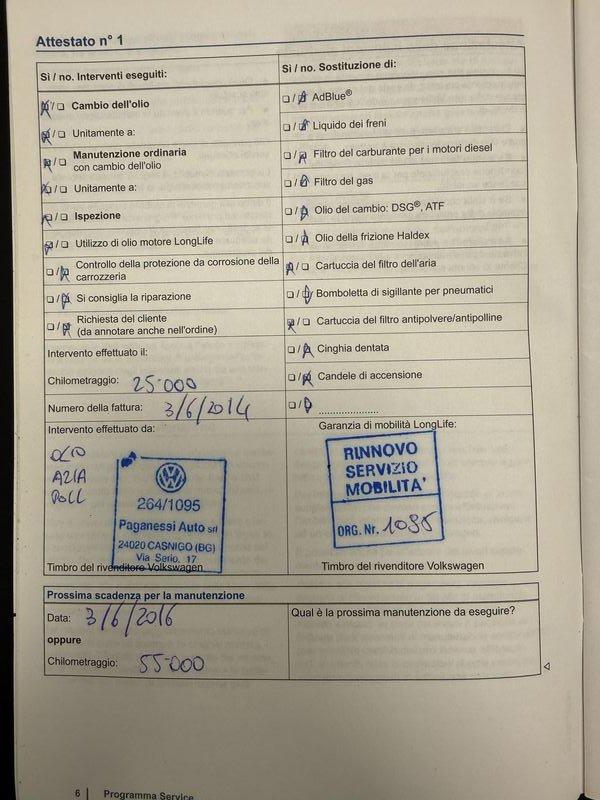 Attestato n° 1
Sì / no. Interventi eseguiti:
☒ / ☐ Cambio dell'olio
☒ / ☐ Unitamente a:
☒ / ☐ Manutenzione ordinaria
con cambio dell'olio
☒ / ☐ Unitamente a:
☒ / ☐ Ispezione
☒ / ☐ Utilizzo di olio motore LongLife
☐ / ☒ Controllo della protezione da corrosione della
carrozzeria
☐ / ☒ Si consiglia la riparazione
☐ / ☒ Richiesta del cliente
(da annotare anche nell'ordine)
Intervento effettuato il:
Chilometraggio: 25.000
Numero della fattura: 3/6/2014
Intervento effettuato da:
OLIO
ARIA
POLL
264/1095
Paganessi Auto srl
24020 CASNIGO (BG)
Via Serio, 17
Timbro del rivenditore Volkswagen
Sì / no. Sostituzione di:
☐ / ☒ AdBlue®
☐ / ☒ Liquido dei freni
☐ / ☒ Filtro del carburante per i motori diesel
☐ / ☒ Filtro del gas
☐ / ☒ Olio del cambio: DSG®, ATF
☐ / ☒ Olio della frizione Haldex
☒ / ☐ Cartuccia del filtro dell'aria
☐ / ☒ Bomboletta di sigillante per pneumatici
☒ / ☐ Cartuccia del filtro antipolvere/antipolline
☐ / ☒ Cinghia dentata
☐ / ☒ Candele di accensione
☐ / ☒ .....................
Garanzia di mobilità LongLife:
RINNOVO
SERVIZIO
MOBILITA'
ORG. Nr. 1095
Timbro del rivenditore Volkswagen
Prossima scadenza per la manutenzione
Data: 3/6/2016
oppure
Chilometraggio: 55.000
Qual è la prossima manutenzione da eseguire?
6 | Programma Service